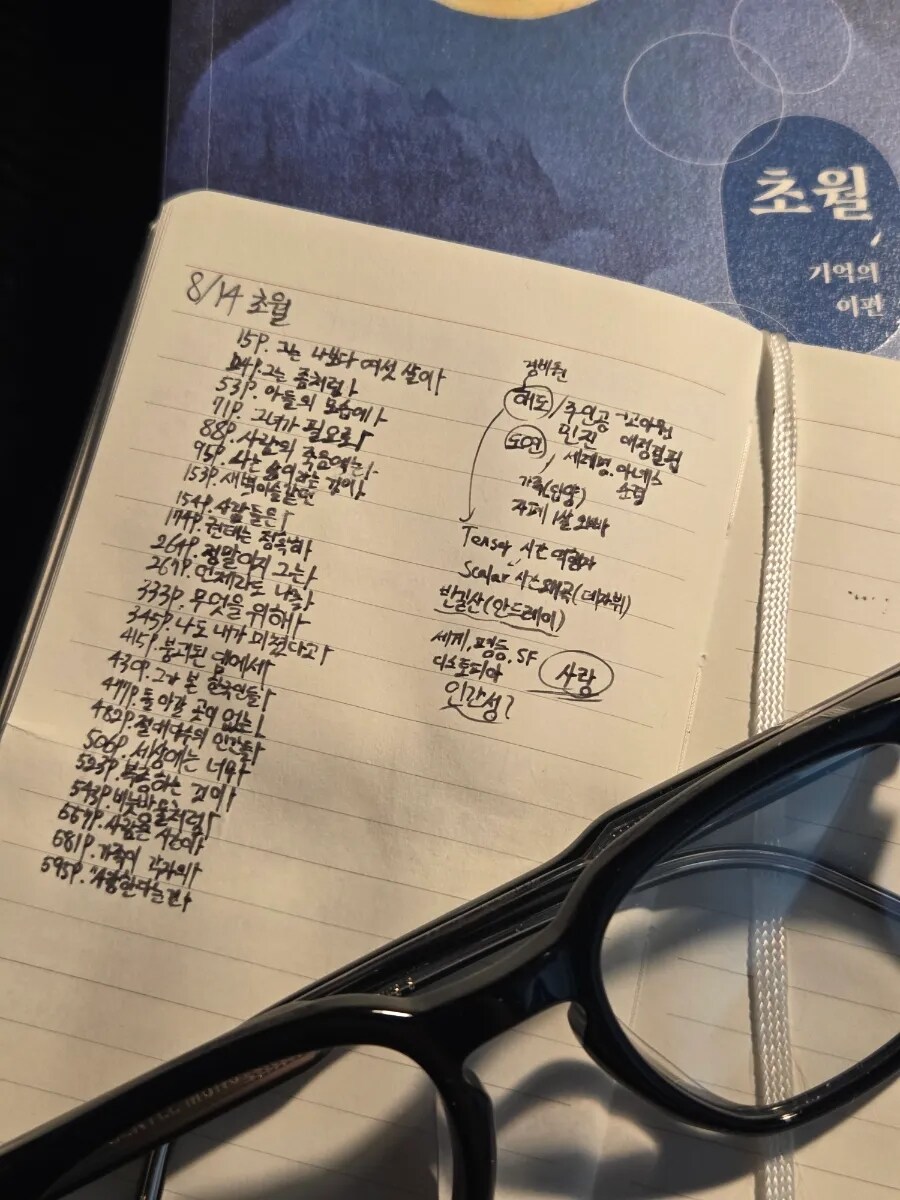 초월
기억의
이편
8/14 초월
15P. 그는 나보다 여섯 살아
그는 좀처럼
53P. 아들의 모습에
71P. 그녀가 필요로
88P. 사람의 죽음에는
95P. 사는
153P. 새벽이슬같던
154P. 사람들은
174P. 현대는
264P. 정말이지 그는
267P. 언제라도 나를
333P. 무엇을 위해
345P. 나도 내가 미쳤다고
415P. 붕괴된 댐에서
430P. 그가 본 한국인들
477P. 돌아갈 곳이 없는
482P. 절대다수의 인간들
506P. 세상에는 너
복종하는 것이
543P. 비눗방울처럼
사람은
681P. 가족이 각자의
695P. "사랑한다는건
정비원
해도/주인공
민진 애정결핍
도연
세례명. 아네스
가족(입양)
자폐 1살 오빠
Tensor 시간 여행자
Scalar (데자뷔)
반길산(안드레이)
세계, 평등, SF
디스토피아 사랑
인간성?